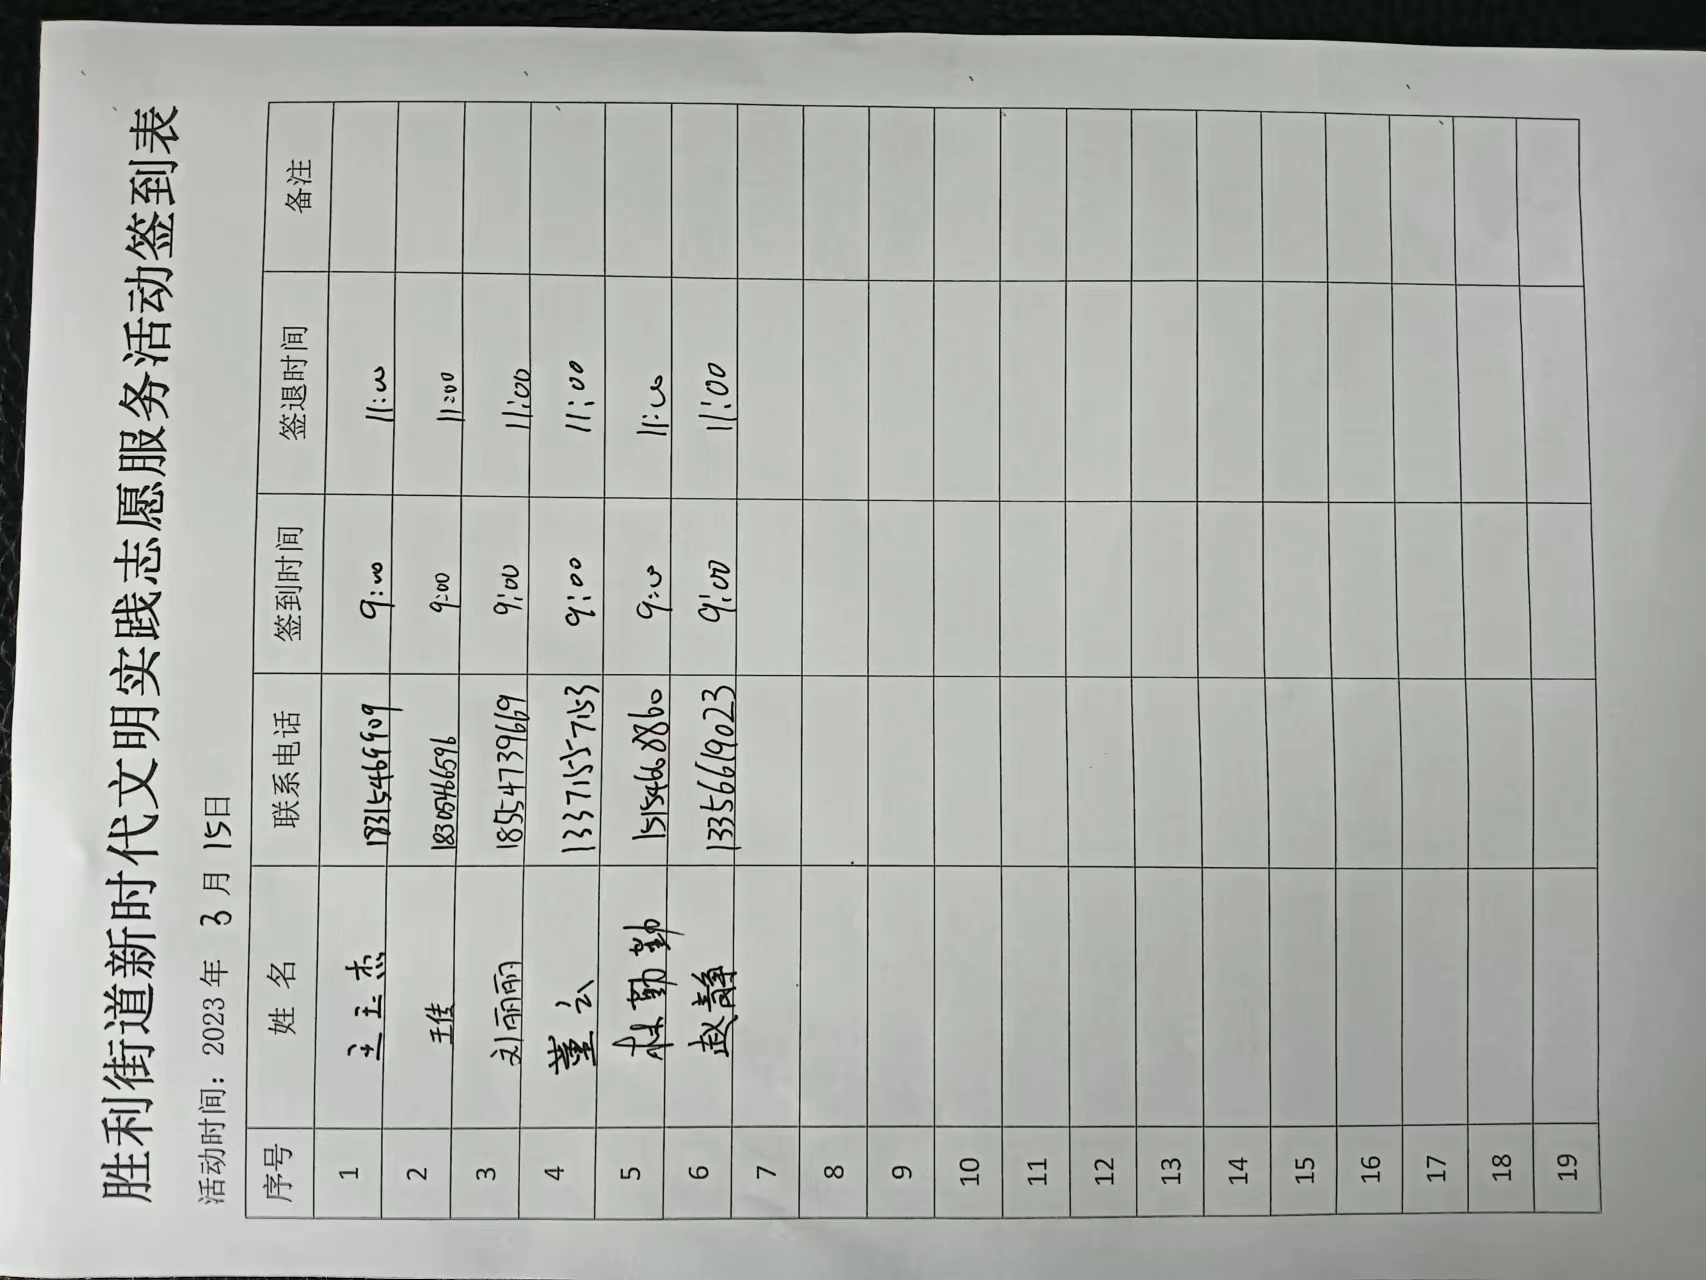 胜利街道新时代文明实践志愿服务活动签到表
活动时间：2023年 3 月 15日
序号 姓 名 联系电话 签到时间 签退时间 备注
1 王玉杰 9:00 11:00
2 王佳 18305466596 9:00 11:00
3 刘丽丽 18554739669 9:00 11:00
4 董云 13371557153 9:00 11:00
5 林勤勤 15154668860 9:00 11:00
6 赵静 13356619023 9:00 11:00
7
8
9
10
11
12
13
14
15
16
17
18
19